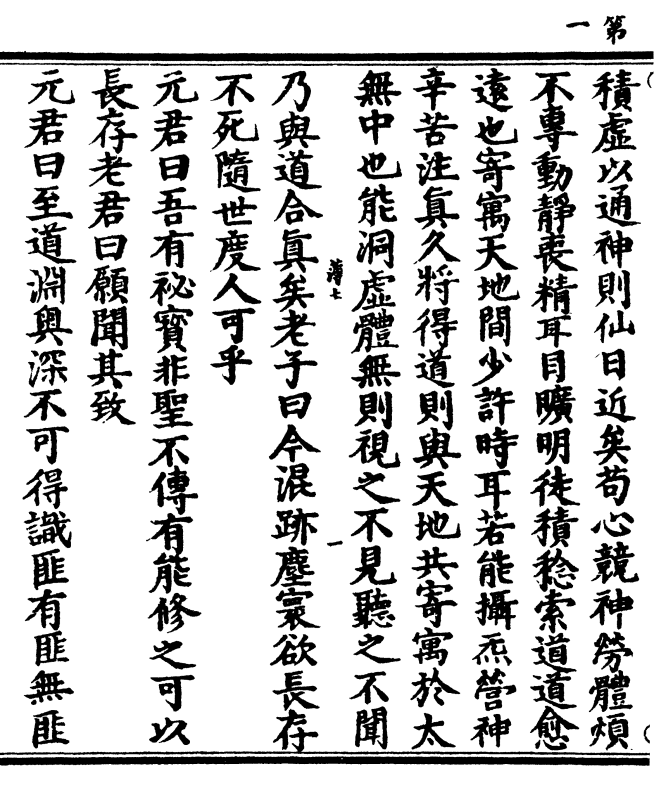 第一
積虛以通神則仙日近矣苟心競神勞體煩
不專動靜喪精耳目曠明徒積稔索道道愈
遠也寄寓天地間少許時耳若能攝炁營神
辛苦注真久將得道則與天地共寄寓於太
無中也能洞虛體無則視之不見聽之不聞
薄七
一
乃與道合真矣老子曰今混跡塵寰欲長存
不死隨世度人可乎
元君曰吾有祕寶非聖不傳有能修之可以
長存老君曰願聞其致
元君曰至道淵奧深不可得識匪有匪無匪